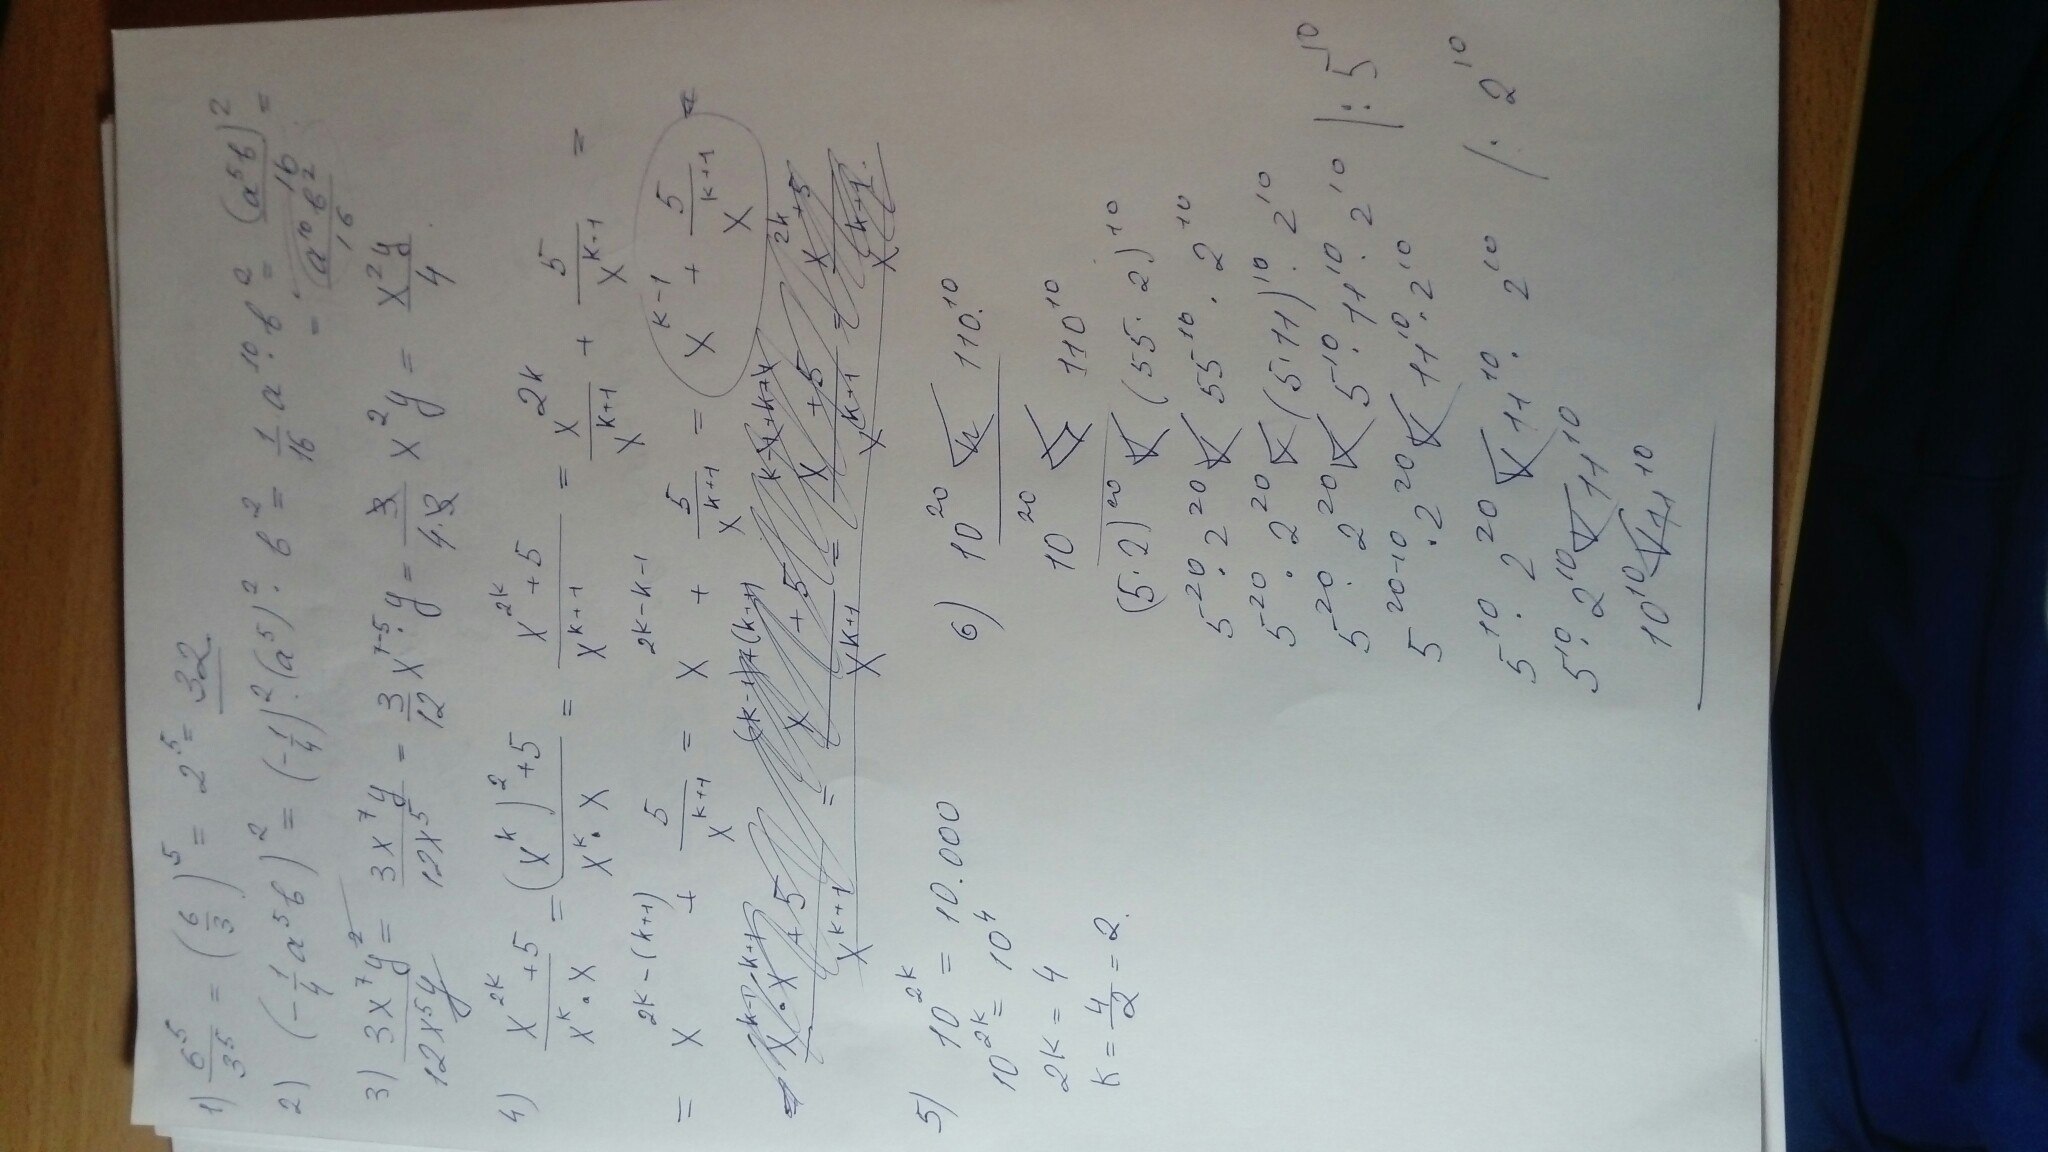 1) 6⁵/3⁵ = (6/3)⁵ = 2⁵ = 32
2) (-1/4 a⁵b)² = (-1/4)²·(a⁵)²·b² = 1/16 a¹⁰·b² = (a⁵b)²/16 =
= a¹⁰b²/16
3) 3x⁷y²/12x⁵y = 3x⁷y/12x⁵ = 3/12 x⁷⁻⁵·y = 3/4·3 x²y = x²y/4
4) x²ᵏ+5/xᵏ·x = (xᵏ)²+5/xᵏ·x = x²ᵏ+5/xᵏ⁺¹ = x²ᵏ/xᵏ⁺¹ + 5/xᵏ⁺¹ =
= x²ᵏ⁻⁽ᵏ⁺¹⁾ + 5/xᵏ⁺¹ = x²ᵏ⁻ᵏ⁻¹ + 5/xᵏ⁺¹ = xᵏ⁻¹ + 5/xᵏ⁺¹
5) 10²ᵏ = 10.000
10²ᵏ = 10⁴
2k = 4
k = 4/2 = 2.
6) 10²⁰ < 110¹⁰
10²⁰ < 110¹⁰
(5·2)²⁰ < (55·2)¹⁰
5²⁰·2²⁰ < 55¹⁰·2¹⁰
5²⁰·2²⁰ < (5·11)¹⁰·2¹⁰
5²⁰·2²⁰ < 5¹⁰·11¹⁰·2¹⁰ |:5¹⁰
5²⁰⁻¹⁰·2²⁰ < 11¹⁰·2¹⁰
5¹⁰·2²⁰ < 11¹⁰·2¹⁰ |:2¹⁰
5¹⁰·2¹⁰ < 11¹⁰
10¹⁰ < 11¹⁰